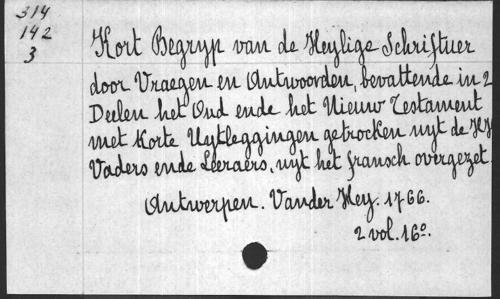 314
142
3
Kort Begryp van de Heylige Schriftuer
door Vraegen en Antwoorden, bevattende in 2
Deelen het Oud ende het Nieuw Testament
met korte Uytleggingen getrocken uyt de HH
Vaders ende Leeraers, uyt het fransch overgezet.
Antwerpen. Vander Hey. 1766.
2 vol. 16º.